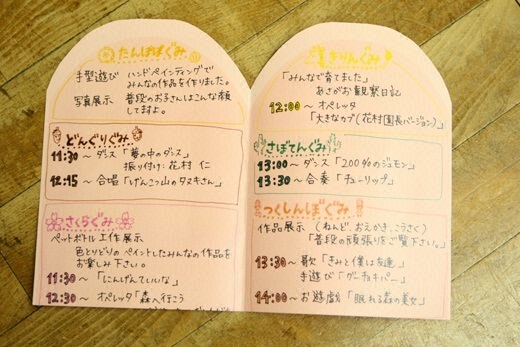 たんぽぽぐみ
手型遊び ハンドペインティングで
みんなの作品を作りました。
写真展示 普段のお子さんはこんな顔
してますよ。
どんぐりぐみ
11:30～ダンス「夢の中のダンス」
振り付け:花村 仁
12:15～合唱「げんこつ山のタヌキさん」
さくらぐみ
ペットボトル工作展示
色とりどりのペイントしたみんなの作品を
お楽しみ下さい。
11:30～「にんげんていいな」
12:30～オペレッタ「森へ行こう
きりんぐみ
「みんなで育てました」
あさがお観察日記
12:00～オペレッタ
「大きなカブ(花村園長バージョン)」
さぼてんぐみ
13:00～ダンス「200%のジモン」
13:30～合奏「チューリップ」
つくしんぼぐみ
作品展示(ねんど、おえかき、こうさく)
「普段の頑張りをご覧下さい。」
13:30～歌「きみと僕は友達」
手遊び「グーチョキパー」
14:00～お遊戯「眠れる森の美女」